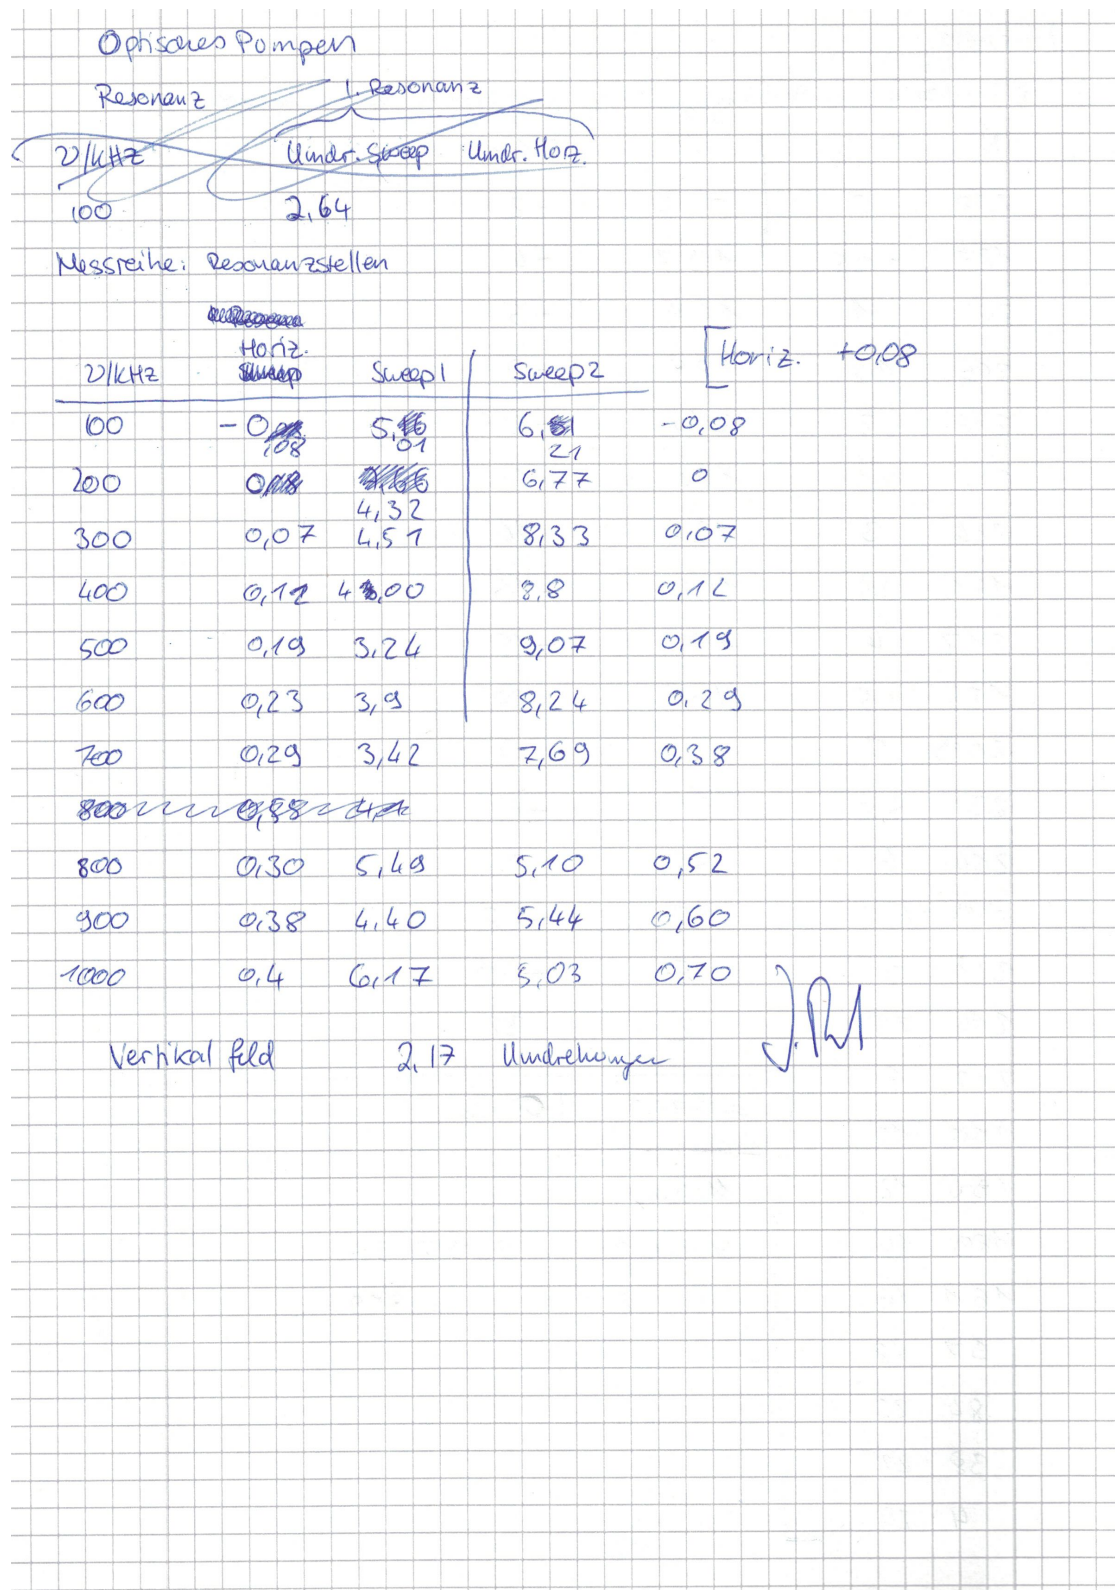 Optisches Pumpen
Resonanz 1. Resonanz
ν/kHz Umdr. Sweep Umdr. Horz.
100 2,64
Messreihe: Resonanzstellen
Horiz. [Horiz. +0,08
ν/kHz Sweep1 Sweep2
100 -0,08 5,01 6,21 -0,08
200 0 4,32 6,77 0
300 0,07 4,51 8,33 0,07
400 0,12 4,00 8,8 0,12
500 0,19 3,24 9,07 0,19
600 0,23 3,9 8,24 0,29
700 0,29 3,42 7,69 0,38
800 0,30 5,49 5,10 0,52
900 0,38 4,40 5,44 0,60
1000 0,4 6,17 5,03 0,70
Vertikalfeld 2,17 Umdrehungen